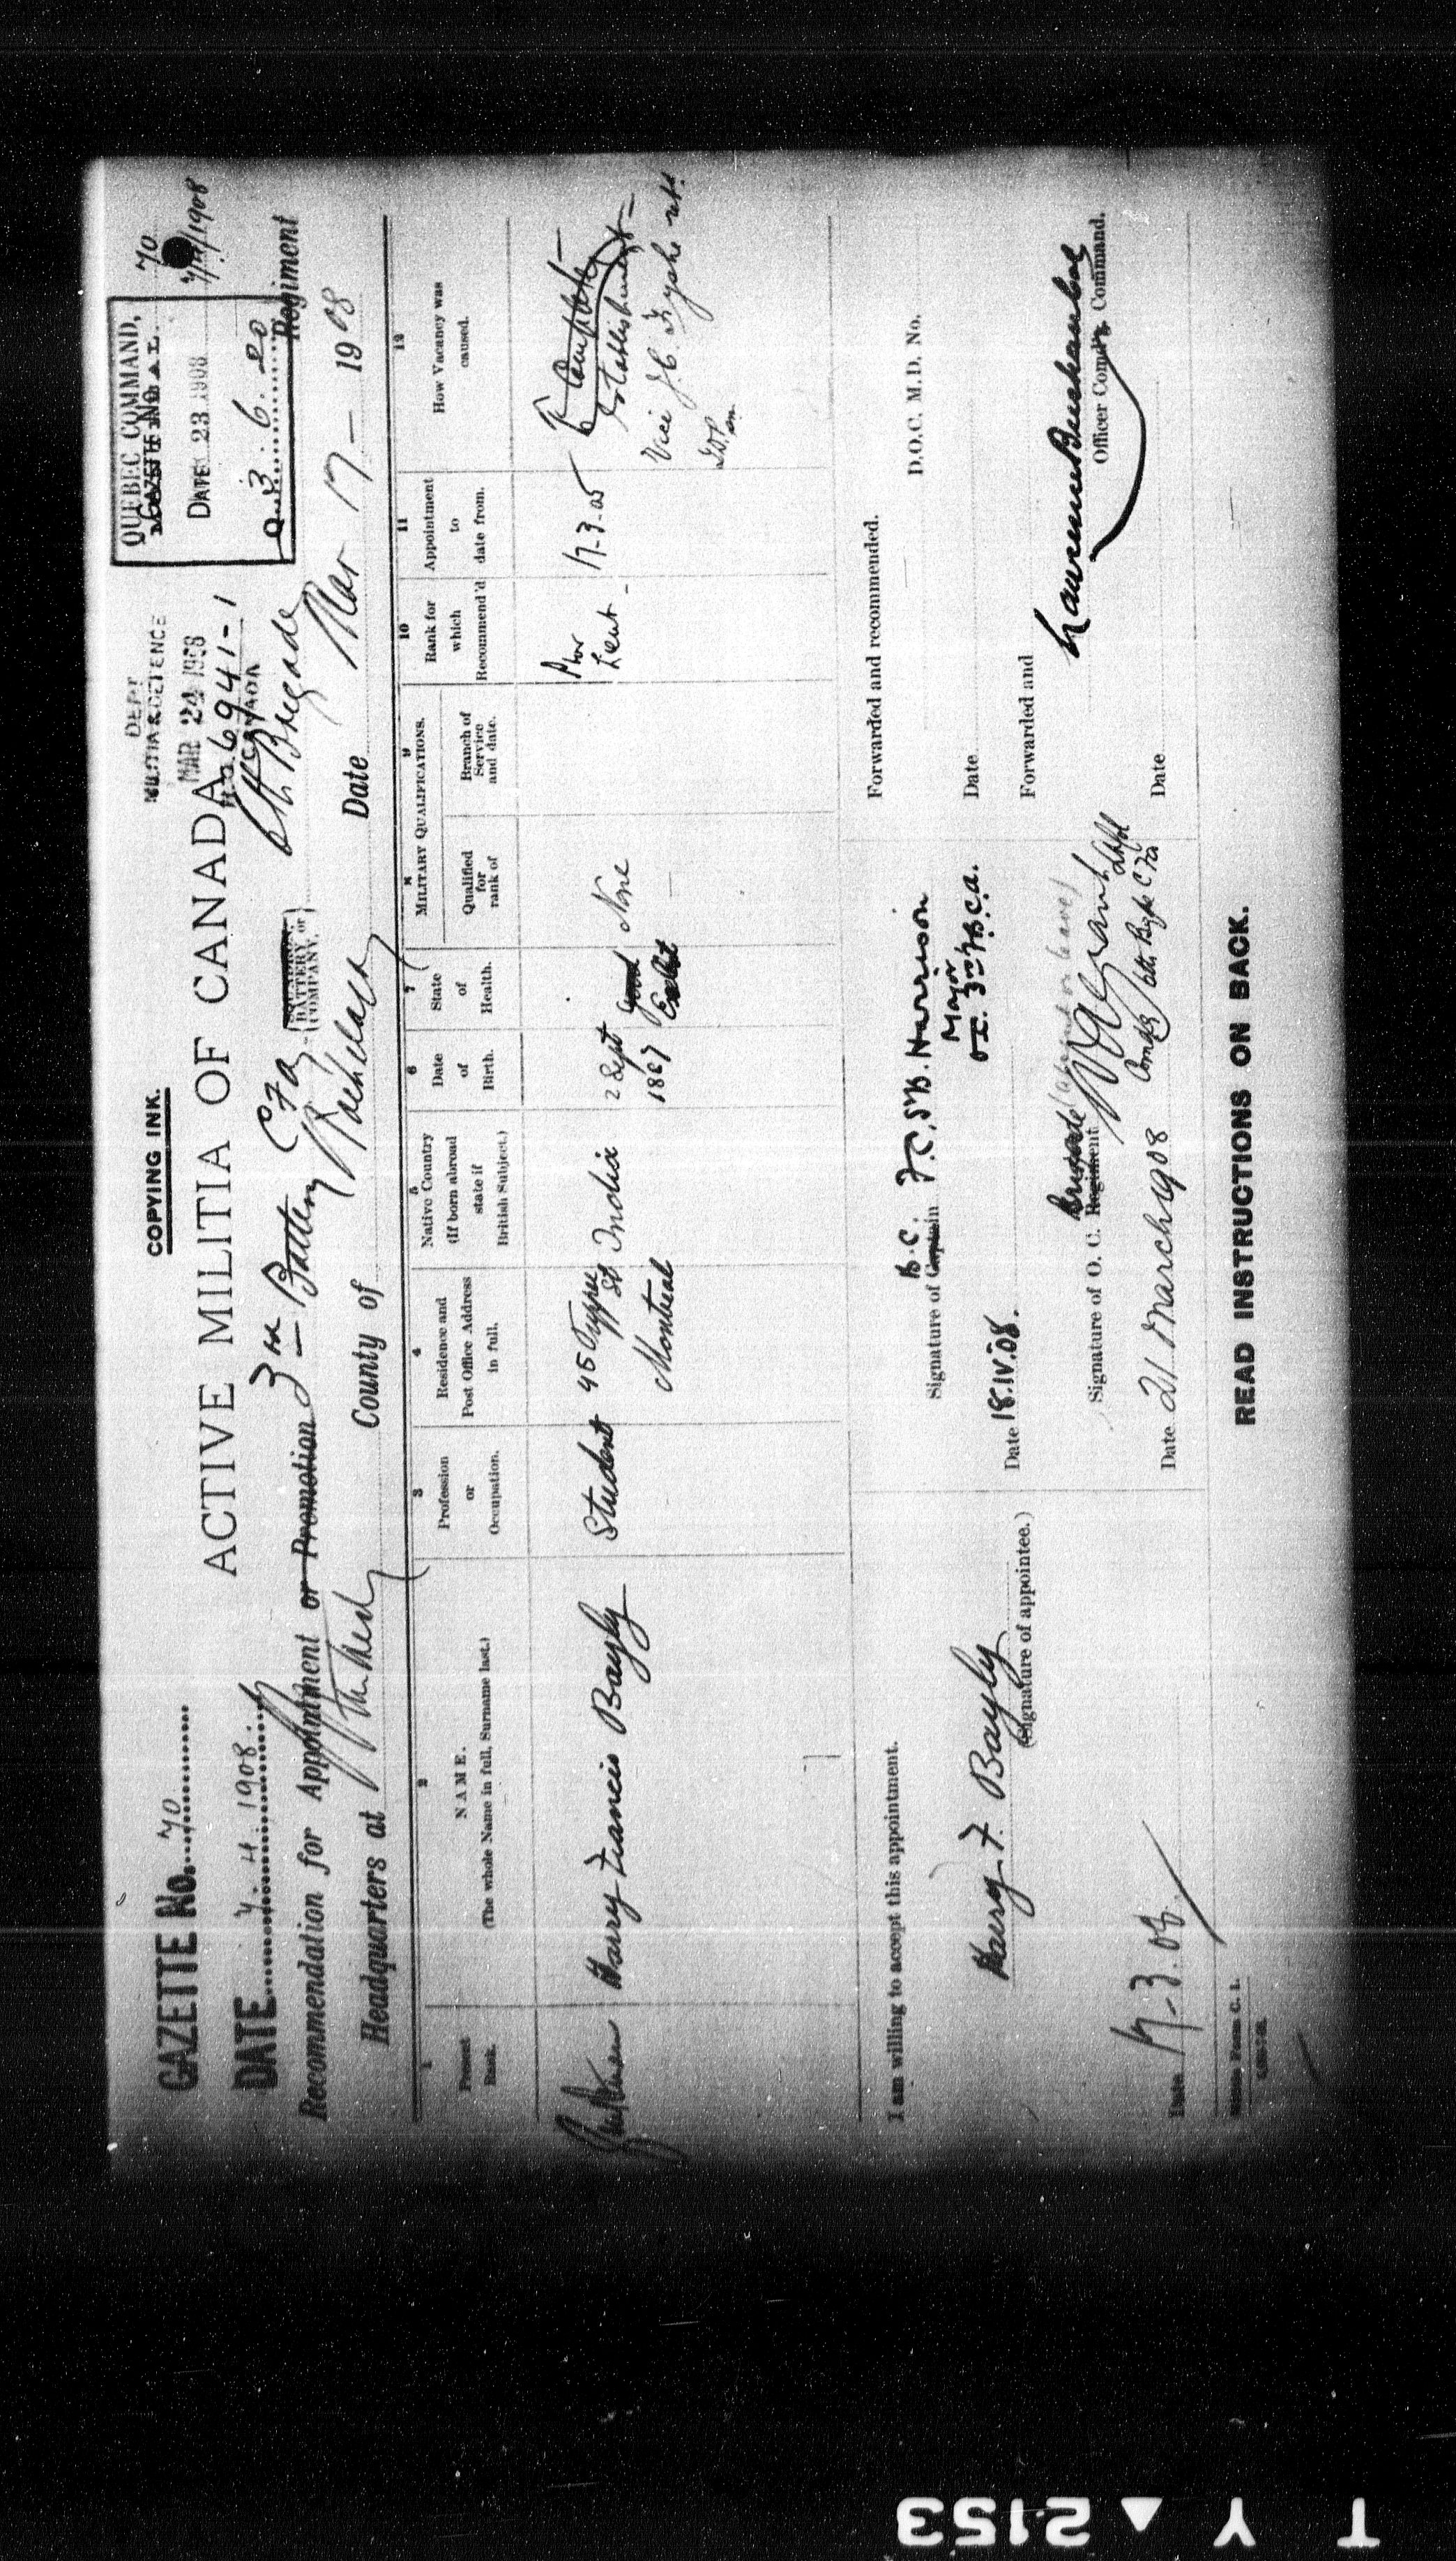 COPYING INK.
GAZETTE No. 70
DATE 7. 4. 1908.
ACTIVE MILITIA OF CANADA
DEPT
MILITIA & DEFENCE
MAR 24 1908
H.Q. 6941-1
CANADA
QUEBEC COMMAND,
GAZETTE No. 70
DATE 23 1908
Q. 3. 6. 20
Recommendation for Appointment or Promotion 3rd Battery CFA
BATTERY, or
COMPANY,
6th Brigade
Regiment
Headquarters at
County of
Date Mar 17 – 1908
1
Present
Rank.
2
NAME.
(The whole Name in full, Surname last.)
3
Profession
or
Occupation.
4
Residence and
Post Office Address
in full.
5
Native Country
(If born abroad
state if
British Subject.)
6
Date
of
Birth.
7
State
of
Health.
MILITARY QUALIFICATIONS.
8
Qualified
for
rank of
9
Branch of
Service
and date.
10
Rank for
which
Recommend'd
11
Appointment
to
date from.
12
How Vacancy was
caused.
Gentleman
Harry Francis Bayly
Student
45 Tupper
St
Montreal
India
2 Sept
1887
good
Exclt
None
Prov
Lieut -
17-3-08
To Complete
Establishment –
Vice J.C. Fyshe
I am willing to accept this appointment.
Harry. F. Bayly
(Signature of appointee.)
Date 17-3.08.
B.C.
Signature of Captain
Harrison
Major
O.C. 3rd F.B. C.A.
Date 18.IV.08.
Brigade (absent on leave)
Signature of O. C. Regiment
Date 21 March 1908
Forwarded and recommended.
D.O.C. M.D. No.
Date
Forwarded and
Officer Comd'g Command.
Date
Militia Form C. 1.
READ INSTRUCTIONS ON BACK.
T Y ▲ 2153